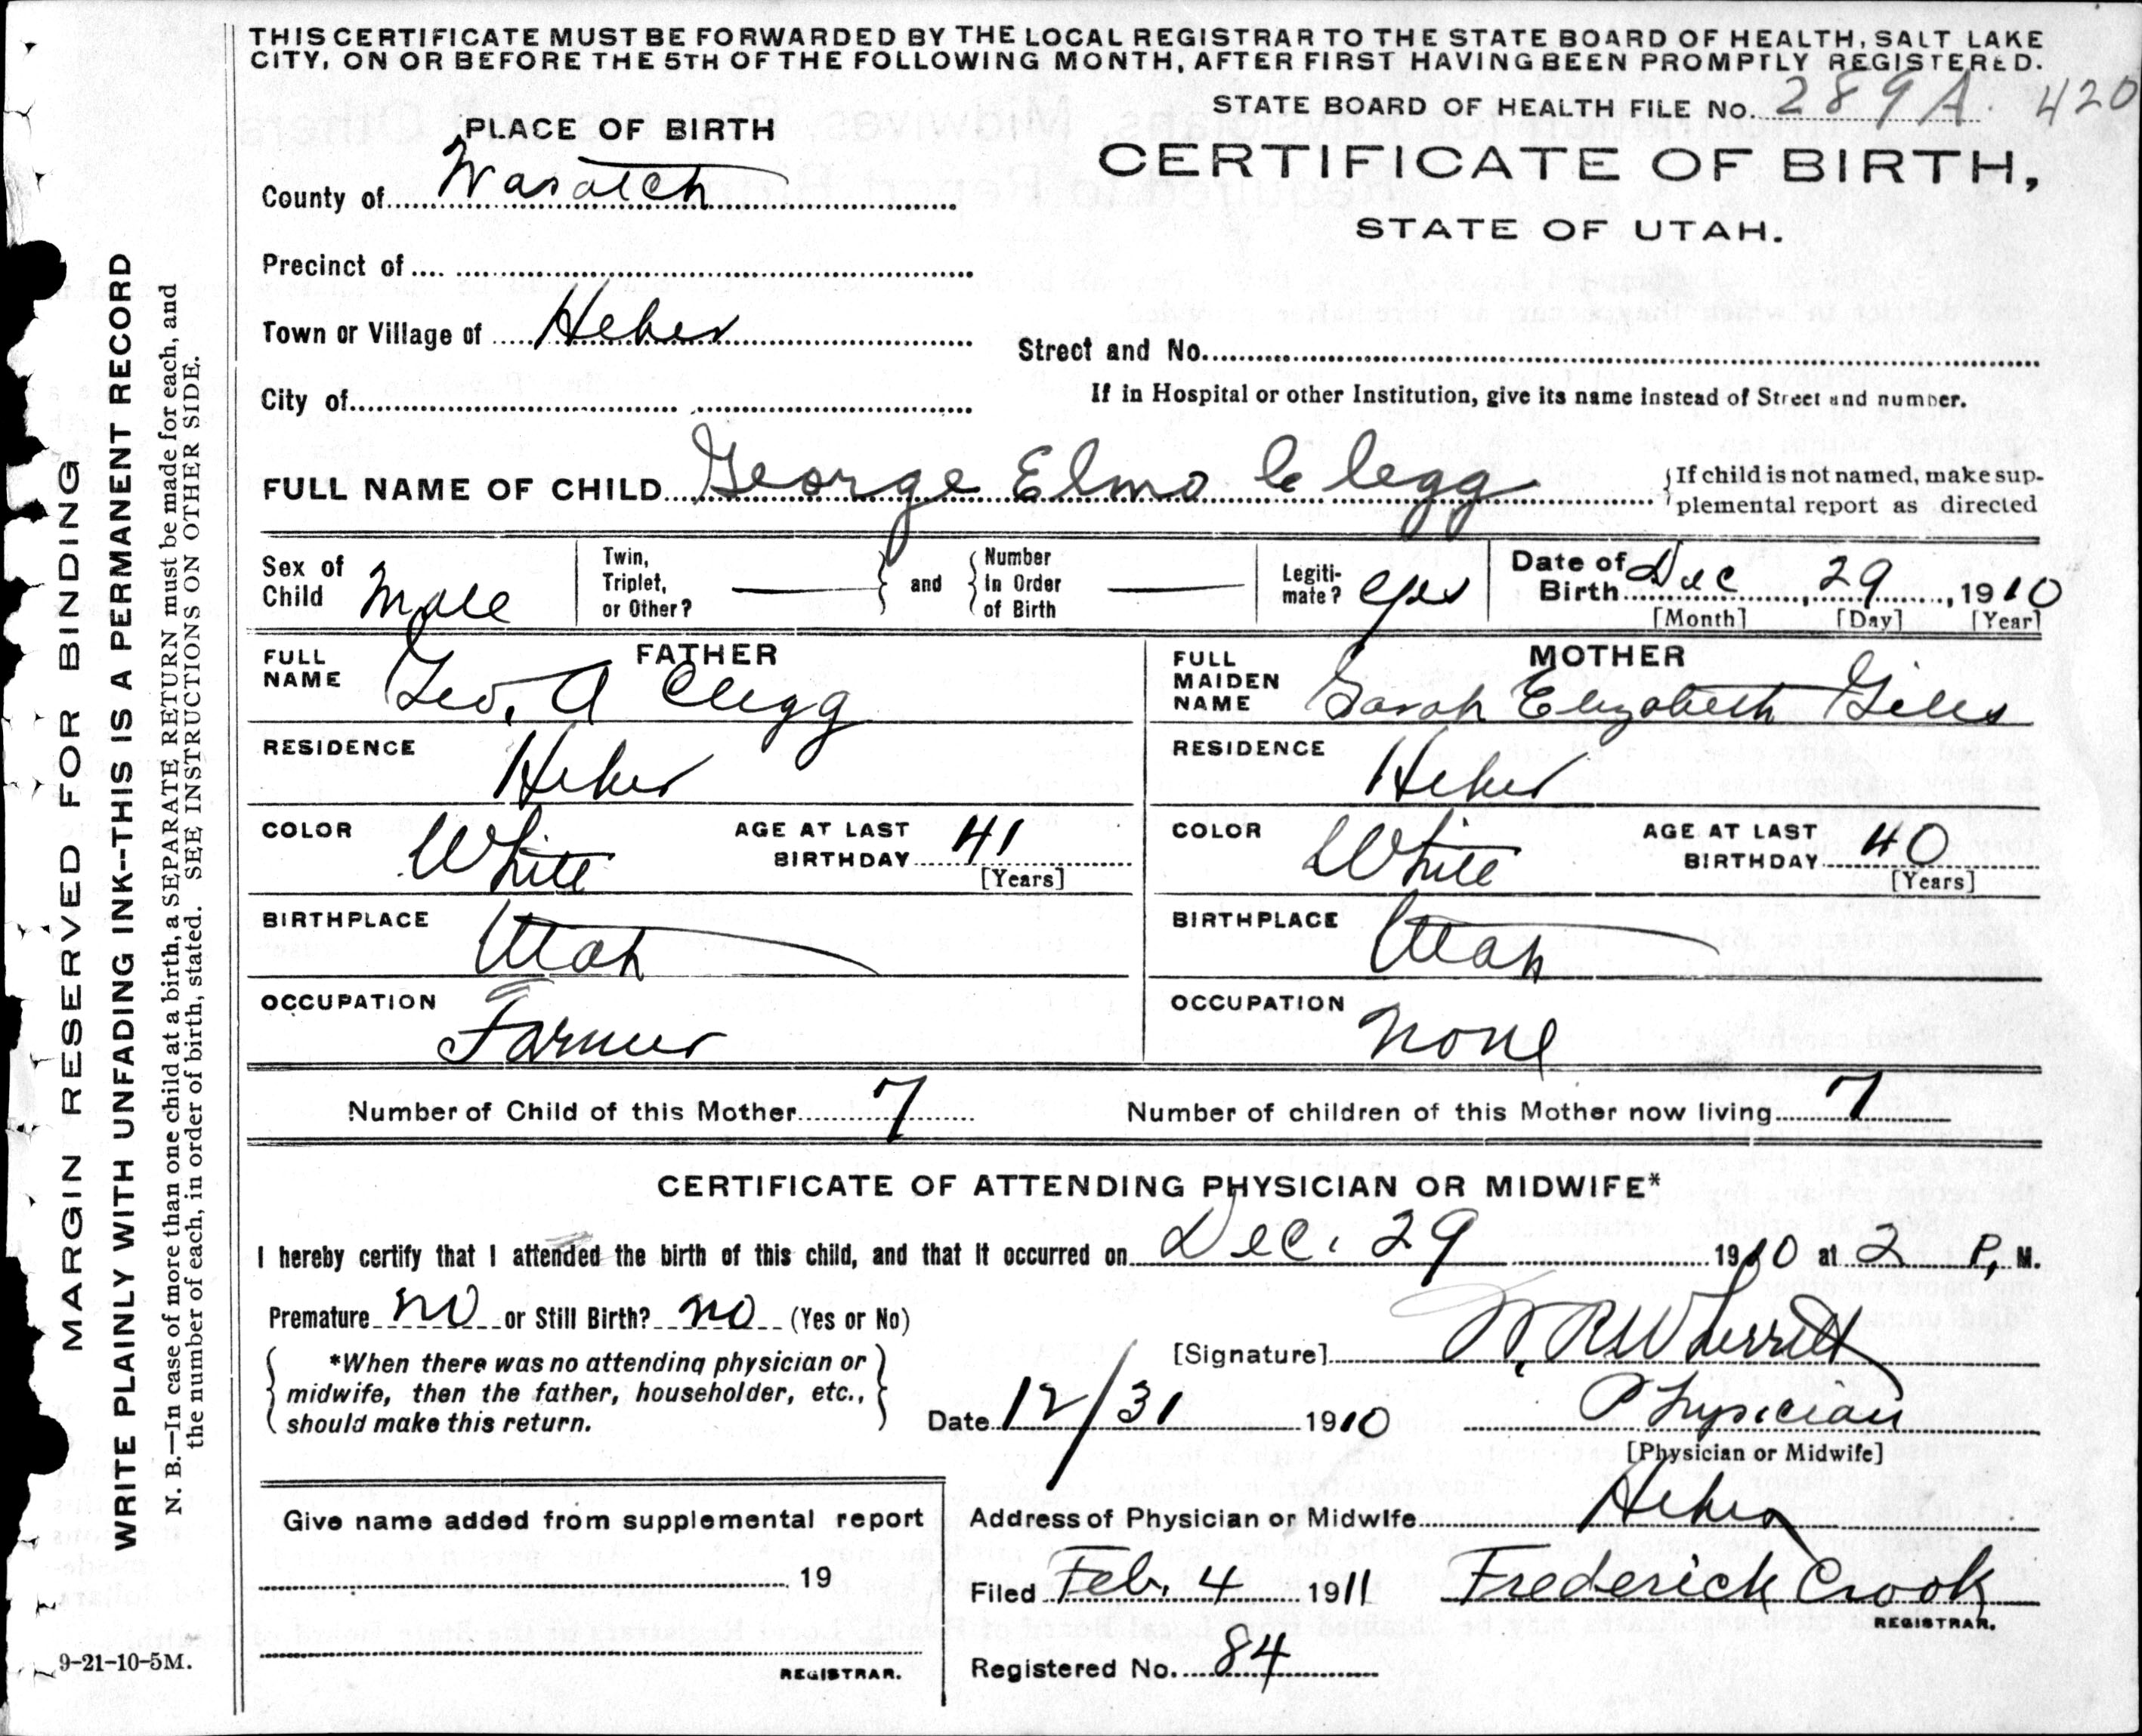 THIS CERTIFICATE MUST BE FORWARDED BY THE LOCAL REGISTRAR TO THE STATE BOARD OF HEALTH, SALT LAKE
CITY, ON OR BEFORE THE 5TH OF THE FOLLOWING MONTH, AFTER FIRST HAVING BEEN PROMPTLY REGISTERED.
STATE BOARD OF HEALTH FILE No. 289 A. 420
PLACE OF BIRTH
CERTIFICATE OF BIRTH,
STATE OF UTAH.
County of Wasatch
Precinct of
Town or Village of Heber
Street and No.
City of
If in Hospital or other Institution, give its name instead of Street and number.
FULL NAME OF CHILD George Elmo Clegg
If child is not named, make sup-
plemental report as directed
Sex of Child Male
Twin, Triplet, or Other? — and Number in Order of Birth —
Legiti-mate? yes
Date of Birth Dec, 29, 1910
[Month] [Day] [Year]
FATHER
FULL NAME Geo. A Clegg
RESIDENCE Heber
COLOR White AGE AT LAST BIRTHDAY 41
[Years]
BIRTHPLACE Utah
OCCUPATION Farmer
MOTHER
FULL MAIDEN NAME Sarah Elizabeth Giles
RESIDENCE Heber
COLOR White AGE AT LAST BIRTHDAY 40
[Years]
BIRTHPLACE Utah
OCCUPATION None
Number of Child of this Mother 7 Number of children of this Mother now living 7
CERTIFICATE OF ATTENDING PHYSICIAN OR MIDWIFE*
I hereby certify that I attended the birth of this child, and that it occurred on Dec. 29 1910 at 2 P, M.
Premature no or Still Birth? no (Yes or No)
*When there was no attending physician or
midwife, then the father, householder, etc.,
should make this return.
[Signature] W. R Wherritt
Date 12/31 1910 Physician
[Physician or Midwife]
Give name added from supplemental report
19
REGISTRAR.
Address of Physician or Midwife Heber
Filed Feb. 4 1911 Frederick Crook
REGISTRAR.
Registered No. 84
MARGIN RESERVED FOR BINDING
WRITE PLAINLY WITH UNFADING INK--THIS IS A PERMANENT RECORD
N. B.—In case of more than one child at a birth, a SEPARATE RETURN must be made for each, and
the number of each, in order of birth, stated. SEE INSTRUCTIONS ON OTHER SIDE.
9-21-10-5M.